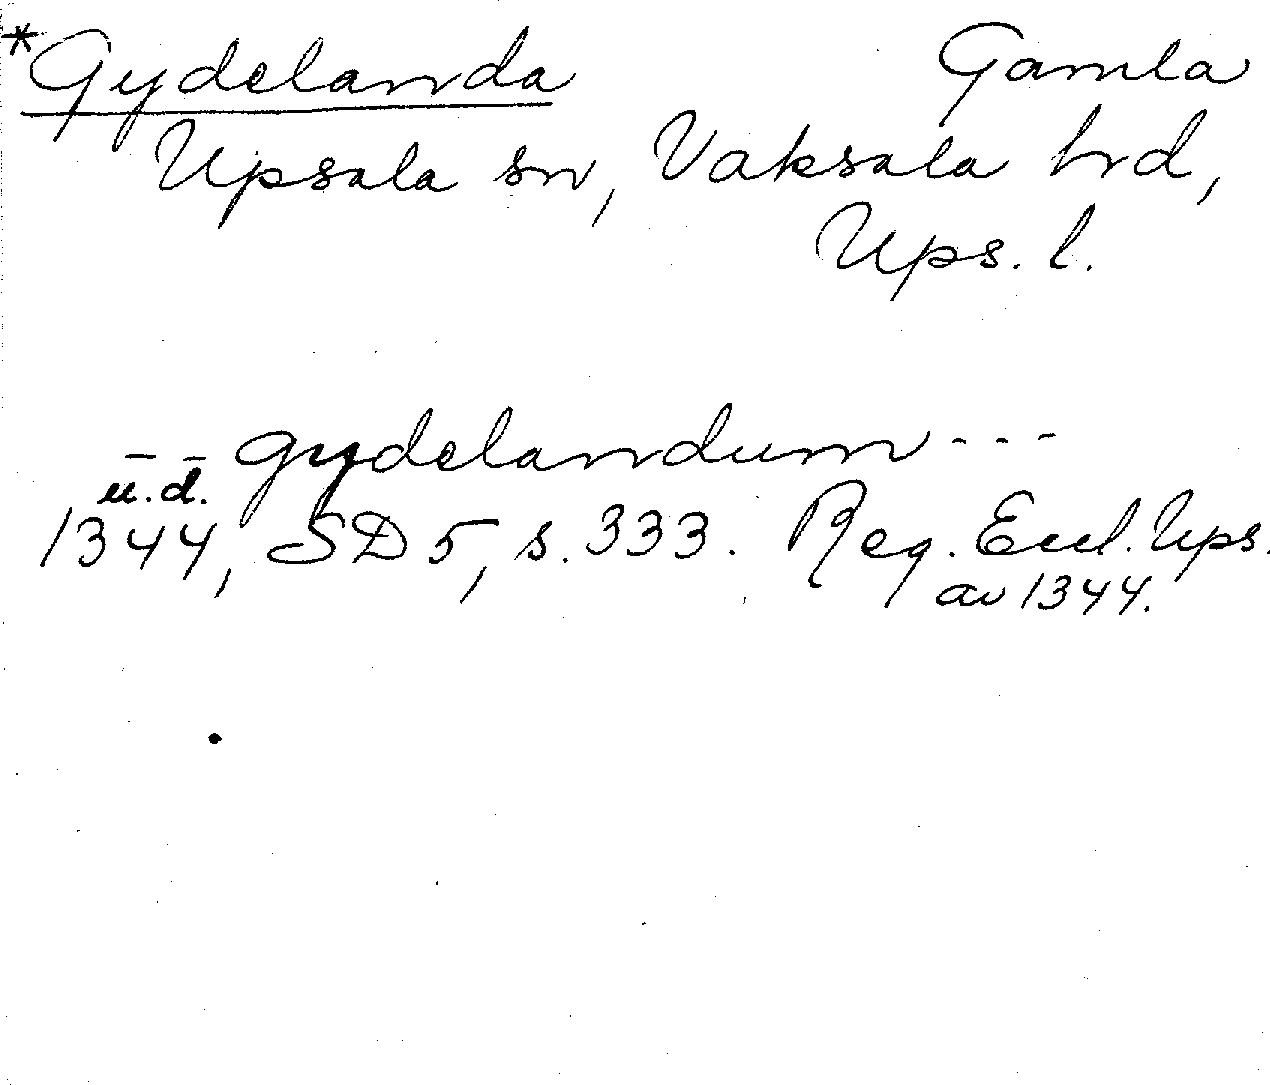 *Gydelanda Gamla
Upsala sn, Vaksala hrd,
Ups. l.
- - gydelandum - - -
u.d.
1344, SD 5, s. 333. Reg. Eccl. Ups.
av 1344.